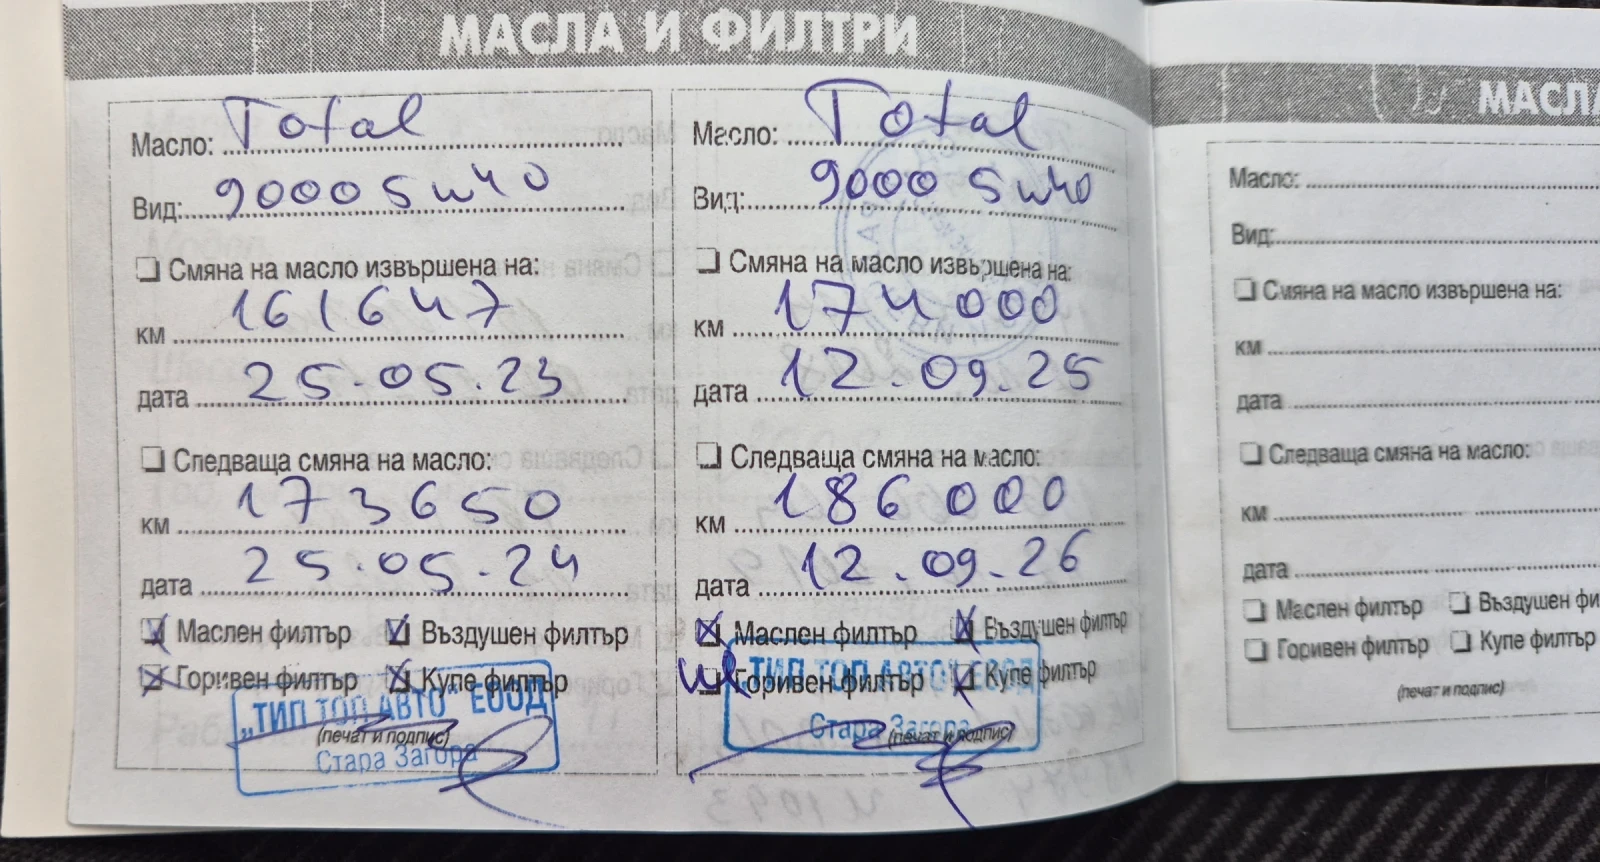 МАСЛА И ФИЛТРИ
Масло: Total
Вид: 9000 5w40
Смяна на масло извършена на:
км 161647
дата 25.05.23
Следваща смяна на масло:
км 173650
дата 25.05.24
Маслен филтър Въздушен филтър
Горивен филтър Купе филтър
„ТИП ТОП АВТО“ ЕООД
(печат и подпис)
Стара Загора
Масло: Total
Вид: 9000 5w40
Смяна на масло извършена на:
км 174000
дата 12.09.25
Следваща смяна на масло:
км 186000
дата 12.09.26
Маслен филтър Въздушен филтър
Горивен филтър Купе филтър
„ТИП ТОП АВТО“ ЕООД
Стара Загора
(печат и подпис)
МАСЛА
Масло:
Вид:
Смяна на масло извършена на:
км
дата
Следваща смяна на масло:
км
дата
Маслен филтър Въздушен фи
Горивен филтър Купе филтър
(печат и подпис)